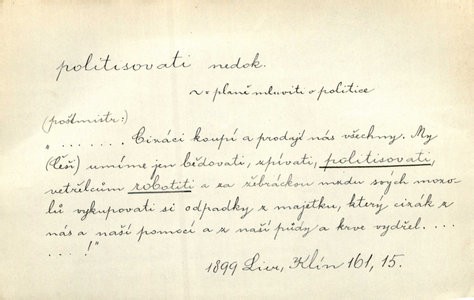 politisovati nedok.
~ planě mluviti o politice
(poštmistr:)
„ . . . . . . . Cizáci koupí a prodají nás všechny. My
(Češi) umíme jen bědovati, zpívati, politisovati,
vetřelcům robotiti a za žebráckou mzdu svých mozo-
lů vykupovati si odpadky z majetku, který cizák z
nás a naší pomocí a z naší půdy a krve vydřel. . . .
. . . . !"
1899 Lier, Klín 161, 15.